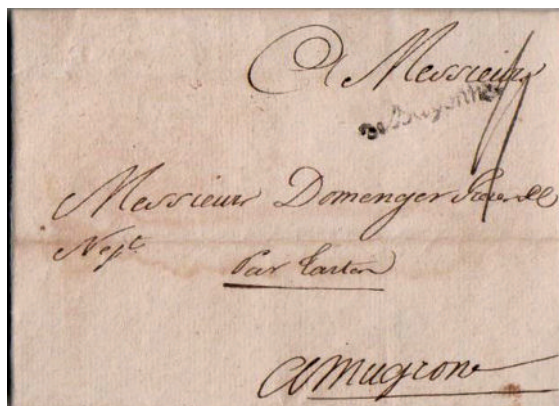 A Messieurs
De Bayonne
Messieurs Domenger
Nept
Par Tartas
A Mugron